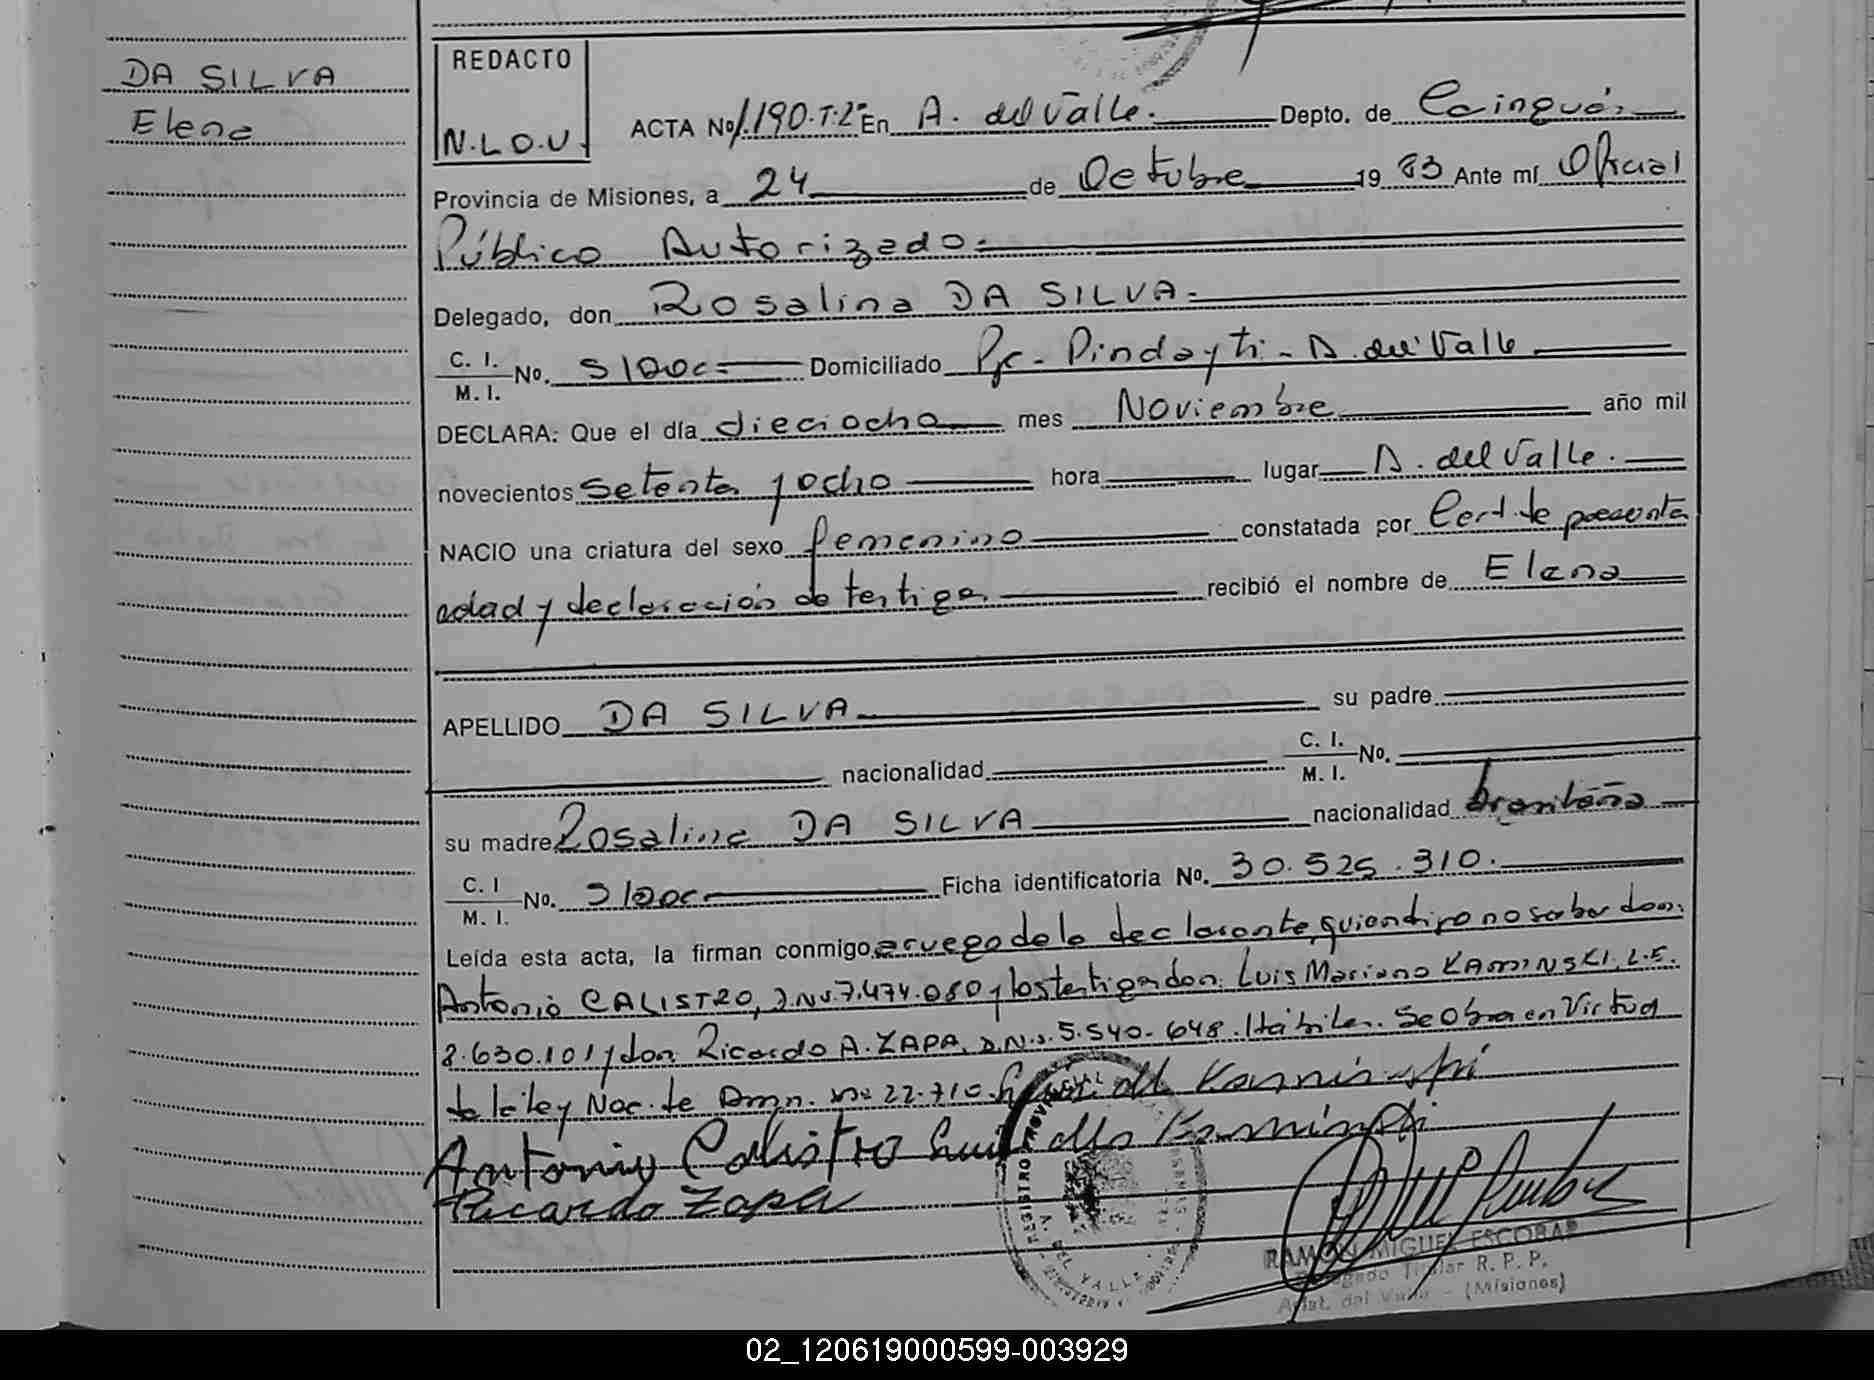 DA SILVA
Elena
REDACTO
N.L.O.V.
ACTA No 1.190.T.2º En A. del Valle. Depto. de Cainguás
Provincia de Misiones, a 24 de Octubre 19 83 Ante mí Oficial
Público Autorizado.
Delegado, don Rosalina DA SILVA.
C. I. M. I. No. S/Doc. Domiciliado Pje. Pindayti - A. del Valle
DECLARA: Que el día dieciocho mes Noviembre año mil
novecientos setenta y ocho hora lugar A. del Valle.
NACIO una criatura del sexo femenino constatada por Cert. de presunta
edad y declaración de testigos recibió el nombre de Elena
APELLIDO DA SILVA su padre
nacionalidad C. I. M. I. No.
su madre Rosalina DA SILVA nacionalidad brasileña
C. I M. I. No. S/Doc Ficha identificatoria No. 30.525.310.
Leída esta acta, la firman conmigo a ruego de la declarante, quien dijo no saber don:
Antonio CALISTRO, D.N.I. 7.474.080 y los testigos don: Luis Mariano KAMINSKI, L.E.
8.630.101 y don Ricardo A. ZAPA, D.N.I. 5.540.648. Hábiles. Se Obra en Virtud
de la ley Nac. de Amn. Nº 22.710.
Kaminski
Antonio Calistro Kaminski
Ricardo Zapa
REGISTRO PROVINCIAL
DEL VALLE
RAMON MIGUEL ESCOBAR
Delegado Titular R. P. P.
Arist. del Valle - (Misiones)
02_120619000599-003929